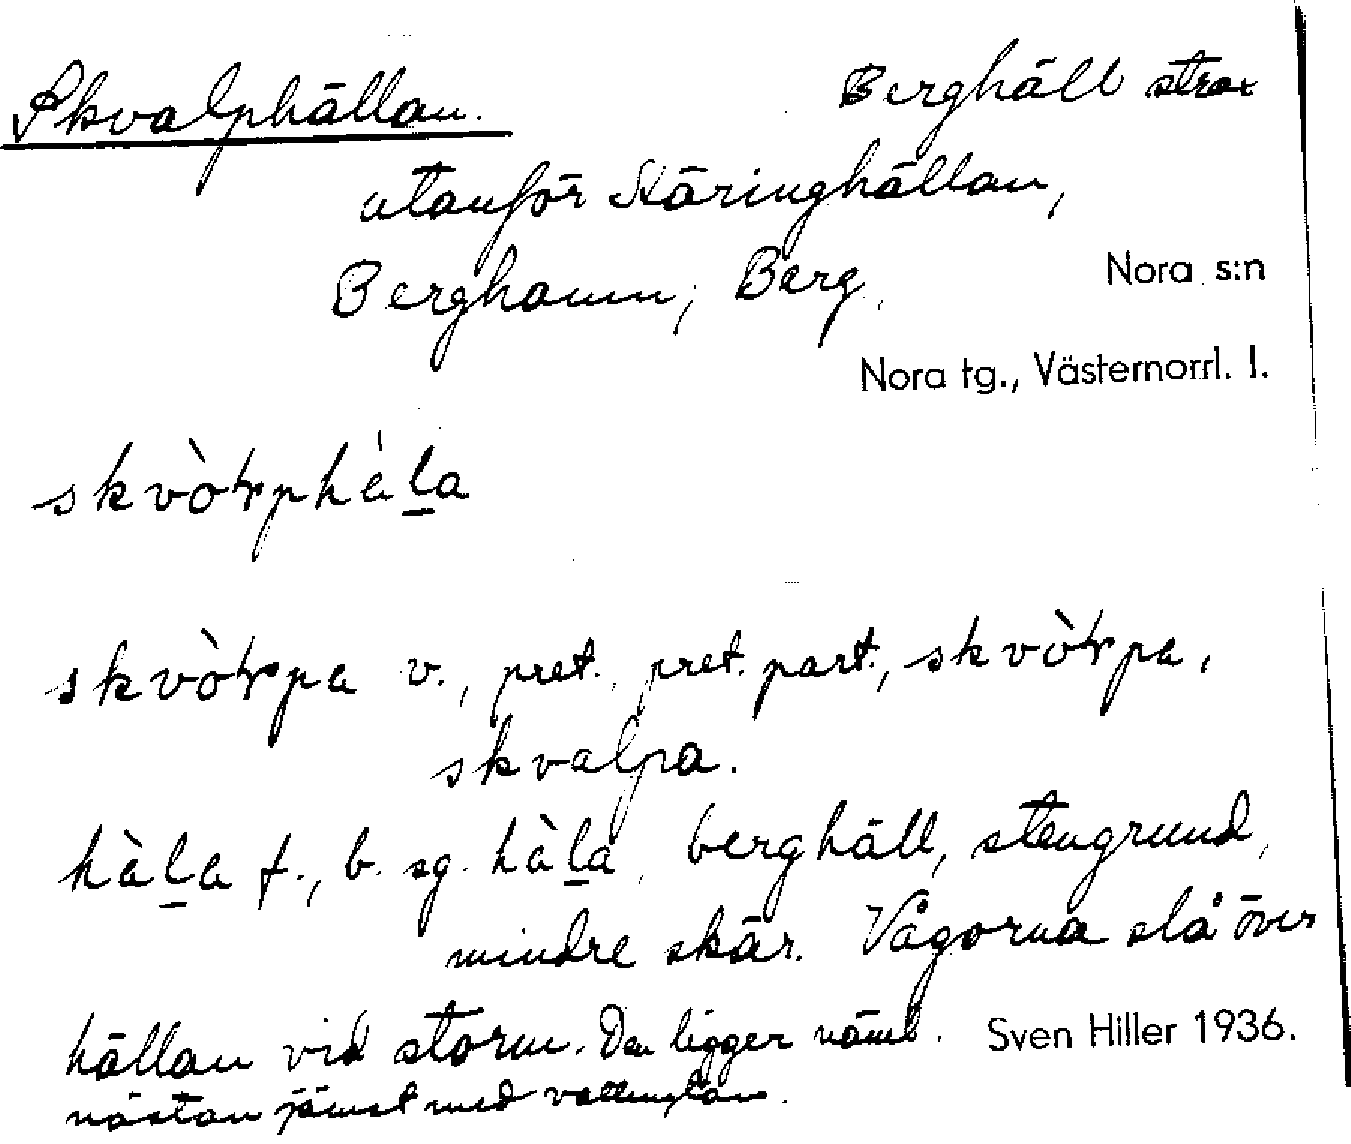 Skvalphällan. Berghäll strax
utanför Käringhällan,
Berghamn, Berg. Nora s:n
Nora tg., Västernorrl. l.
skvòrphèla
skvòrpa v., pret., pret. part., skvòrpa,
skvalpa.
hàla f., b. sg. hàla, berghäll, stengrund,
mindre skär. Vågorna slå över
hällan vid storm. Den ligger näml. Sven Hiller 1936.
nästan jämt med vattenytan.